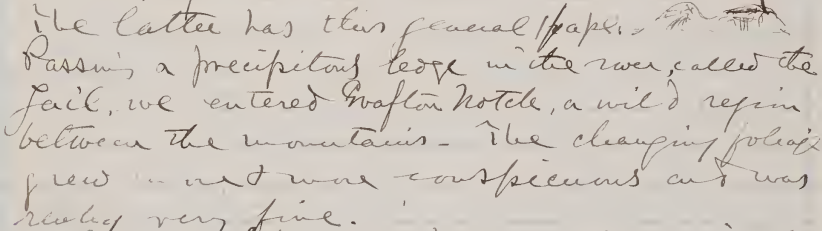 The latter has this general shape.
Passing a precipitous ledge in the river, called the
Jail, we entered Grafton Notch, a wild region
between the mountains - The changing foliage
grew more and more conspicuous and was
really very fine.